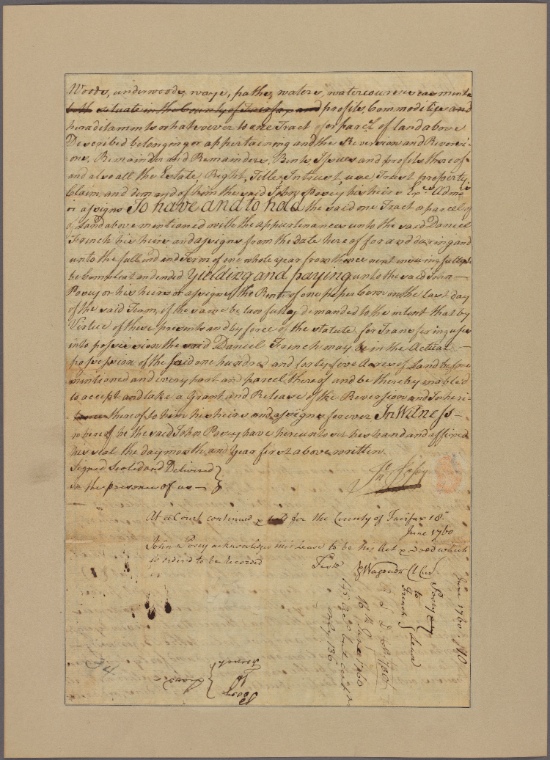 Woods, underwoods, ways, paths, waters, watercourses easments
both situate in the County of Fairfax and profits, Commodityes and
hereditaments whatsoever to one Tract or parcel of land above
Described belonging or appertaining and the Reversion and Reversi-
ons, Remainder and Remainders, Rents Issues and profits thereof
and also all the Estate, Right, Title, Interest, use Trust property
Claim and demand of him the said John Posey his heirs Admrs
or assigns To have and to hold the said one Tract or parcel of
Land above mentioned with the appurtenances unto the said Daniel
French his heirs and assigns from the date hereof for and during and
unto the full end and Term of one whole year from thence next ensuing fully to
be Compleat and ended Yielding and paying unto the said John
Posey or his heirs or assigns the Rent of one pepper Corn on the last day
of the said Term, if the same be lawfully demanded to the intent that by
Virtue of these presents and by force of the statute for Transfering uses
into possession the said Daniel French may be in the Actual
possession of the said one hundred and forty five Acres of Land before
mentioned and every part and parcel thereof and be thereby enabled
to accept and take a Grant and Release of the Reversion and Inheri-
tance thereof to his heirs and assigns forever In Witness
whereof he the said John Posey have hereunto set his hand and affixed
his seal the day month and year first above written
Signed Sealed and Delivered }
in the presence of us }
Jno Posey
At a Court continued & held for the County of Fairfax 18th
June 1760
John Posey acknowledged this Lease to be his Act & Deed which
is ordered to be recorded
Teste
P Wagener Cl Cur
Posey
to
French
Lease
June 1760
Posey
to
French